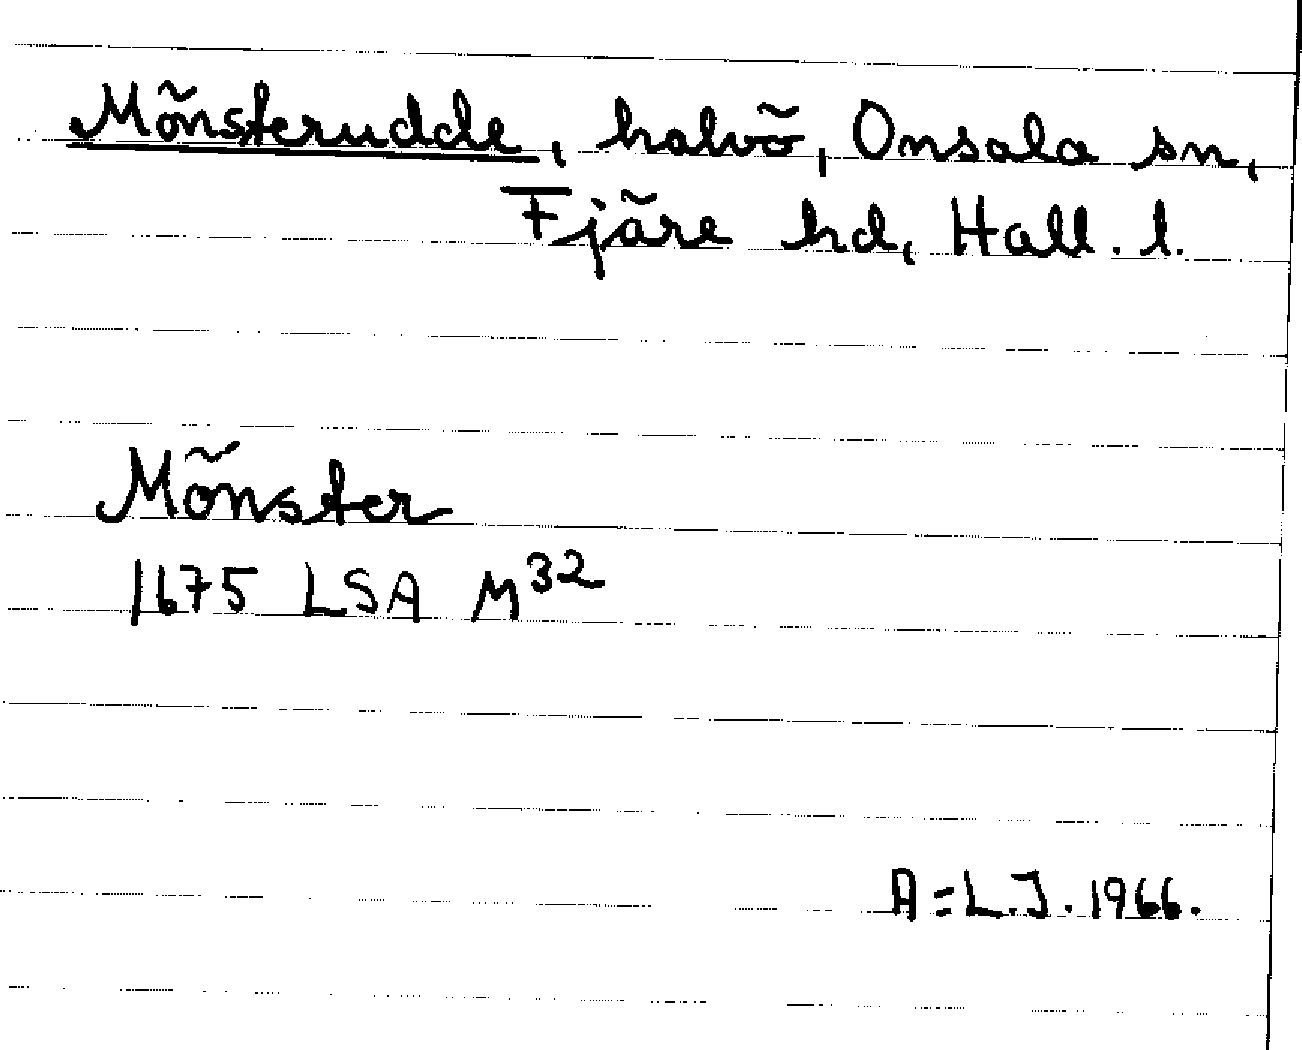 Mönsterudde, halvö, Onsala sn,
Fjäre hd, Hall. l.
Mönster
1675 LSA M³²
A=L.J. 1966.